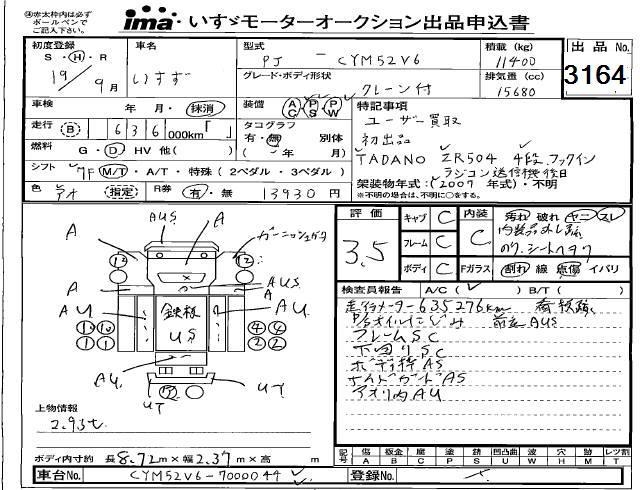 ㊟赤太枠内は必ず
ボールペンで
ご記入下さい。
ima・いすゞモーターオークション出品申込書
初度登録
S・H・R
19年9月
車名
いすず
型式
PJ - CYM52V6
積載 (kg)
11400
出品No.
3164
グレード・ボディ形状
クレーン付
排気量 (cc)
15680
車検 年・月・ 抹消
装備 AC PS PW
特記事項
ユーザー買取
初出品
TADANO ZR504 4段 フックイン
ラジコン送信機後日
走行 (B) 636,000km「 」
タコグラフ
有・無 別体
( ~ 年 月)
燃料 G・D・HV 他( )
シフト 7F M/T・A/T・特殊 (2ペダル・3ペダル)
架装物年式:(2007 年式)・不明
※不明の場合は、不明に○をする。
色 アオ 指定
R券 有・無 13930 円
AUS
A
A
ガーニッシュカケ
A
AUS
A
AU
鉄板
US
AU
AU
UT
UT
評価
3.5
キャブ C
フレーム C
ボディ C
内装 C
汚れ 破れ ヤニ スレ
Fガラス 割れ 線 点傷 イバリ
検査員報告 A/C( ) B/T( )
走行メーター635276km
前立AUS
フレームSC
下回りSC
ボディ枠AS
アオリ内AU
上物情報
2.93t
ボディ内寸約 長8.72m × 幅2.37m × 高 m
記号 傷 A 板金 B 腐 C 塗 P 錆 S 凹凸曲 U 波 W 穴 H 目 M レツ割 T
車台No. CYM52V6-7000044
登録No.